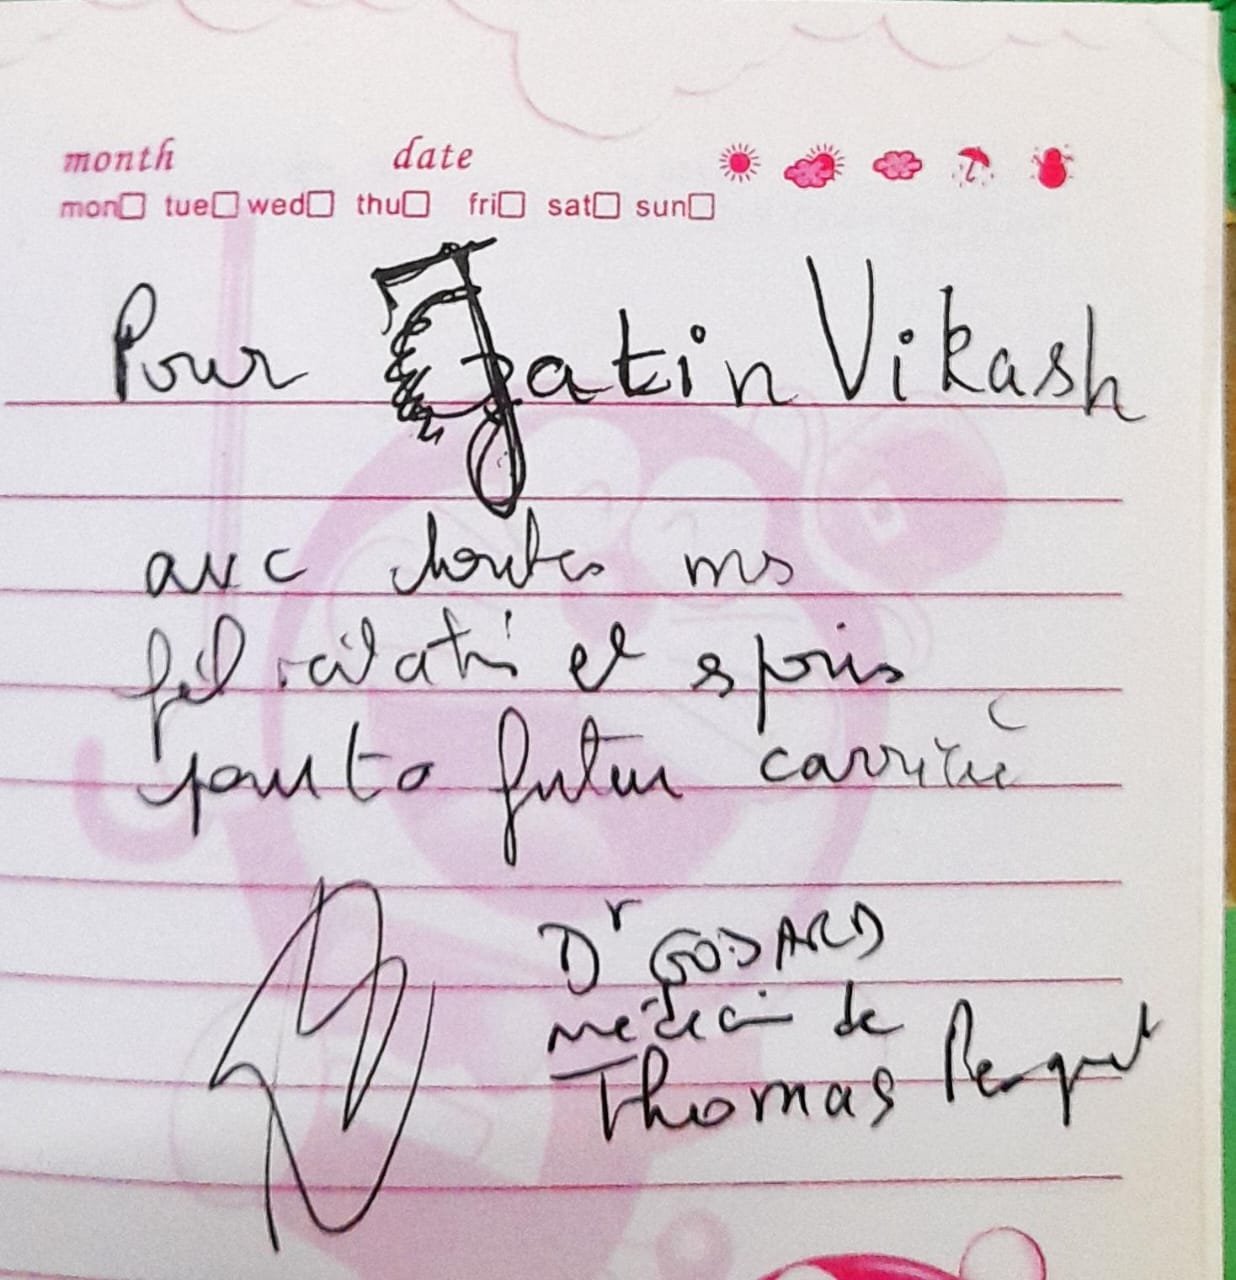 month date
mon tue wed thu fri sat sun
Pour Jatin Vikash
avec toutes mes
félicitations et espoirs
pour ta futur carrière
Dr GODARD
médecin de
Thomas Pesquet